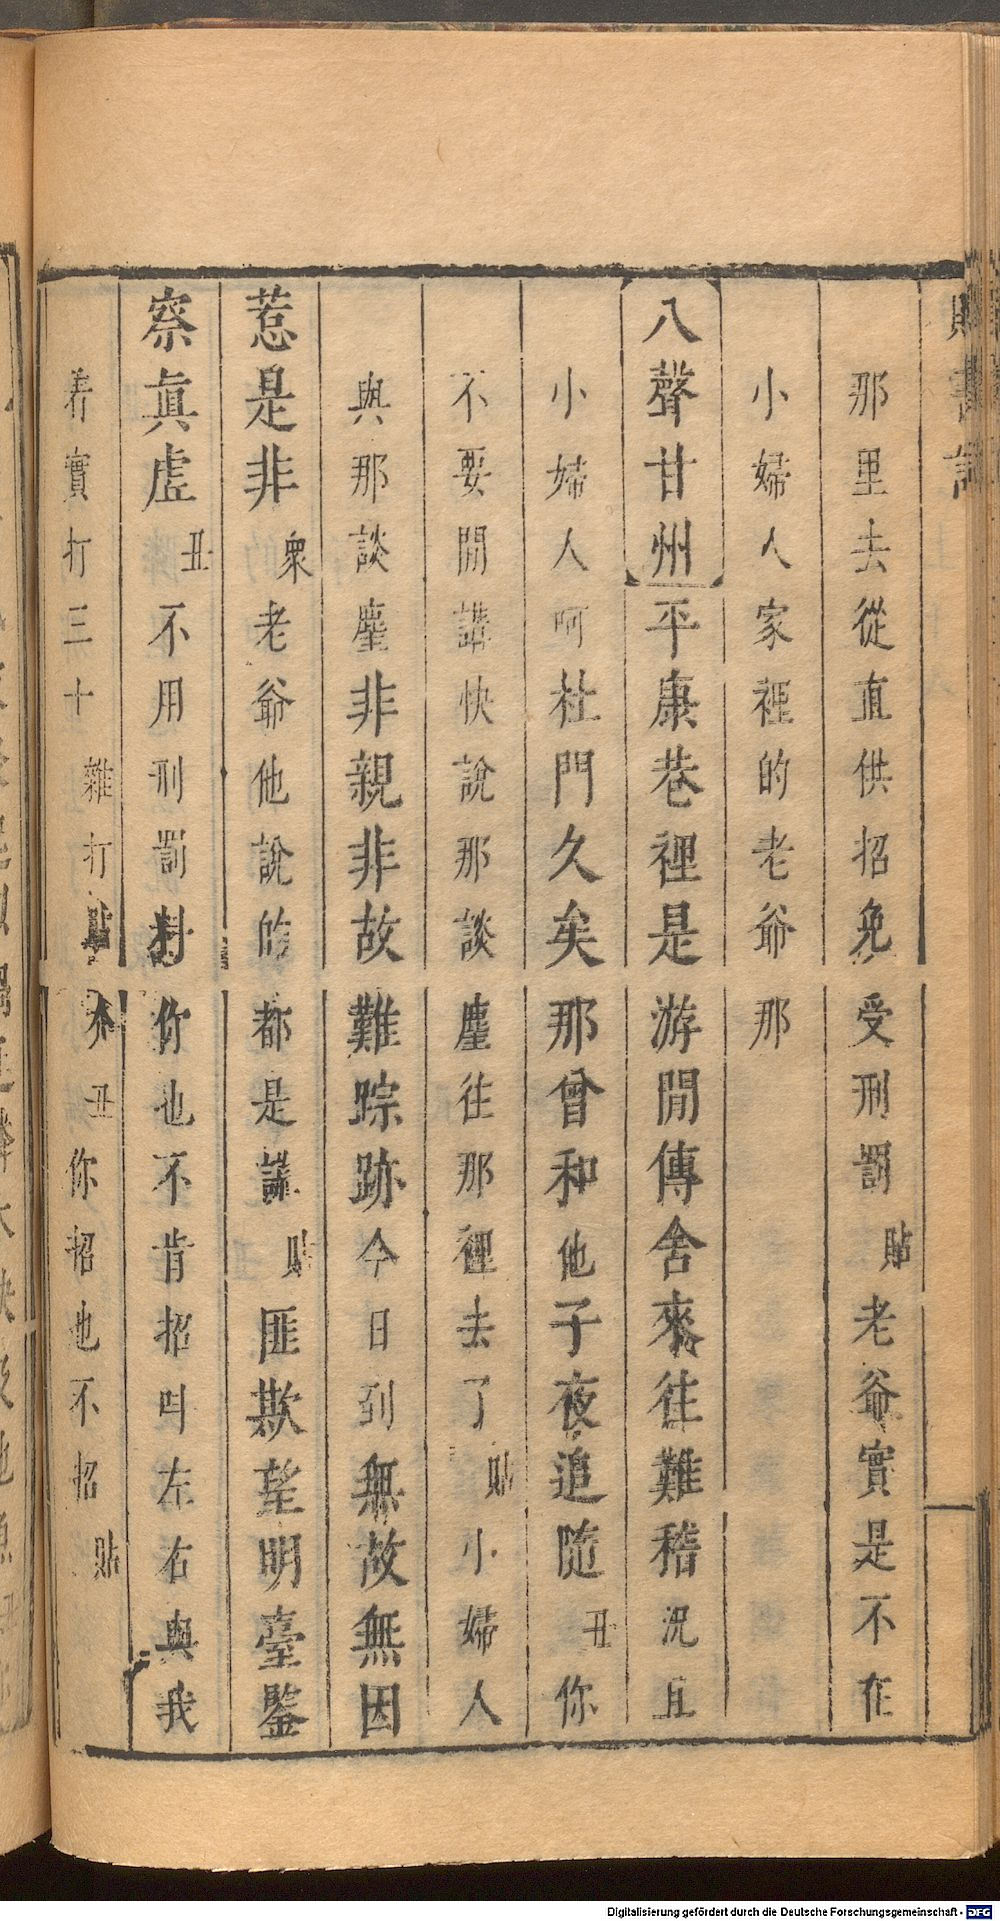 那里去從直供招免受刑罰貼老爺實是不在
小婦人家裡的老爺那
八聲甘州平康巷裡是游閒傳舍來往難稽況且
小婦人呵杜門久矣那曾和他子夜追隨丑你
不要閒講快說那談塵往那裡去了貼小婦人
與那談塵非親非故難踪跡今日到無故無因
惹是非衆老爺他說的都是謊貼匪欺望明臺鑒
察眞虛丑不用刑罰對你也不肯招叫左右與我
着實打三十雜打貼介丑你招也不招貼
Digitalisierung gefördert durch die Deutsche Forschungsgemeinschaft - DFG